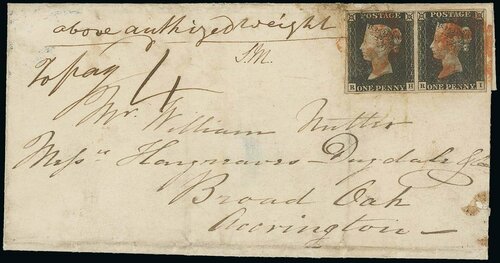 above authized weight
S.M.
To pay 4
POSTAGE POSTAGE
ONE PENNY ONE PENNY
Mr. William Nutter
Messrs Hargreaves Dugdale & Co
Broad Oak
Accrington